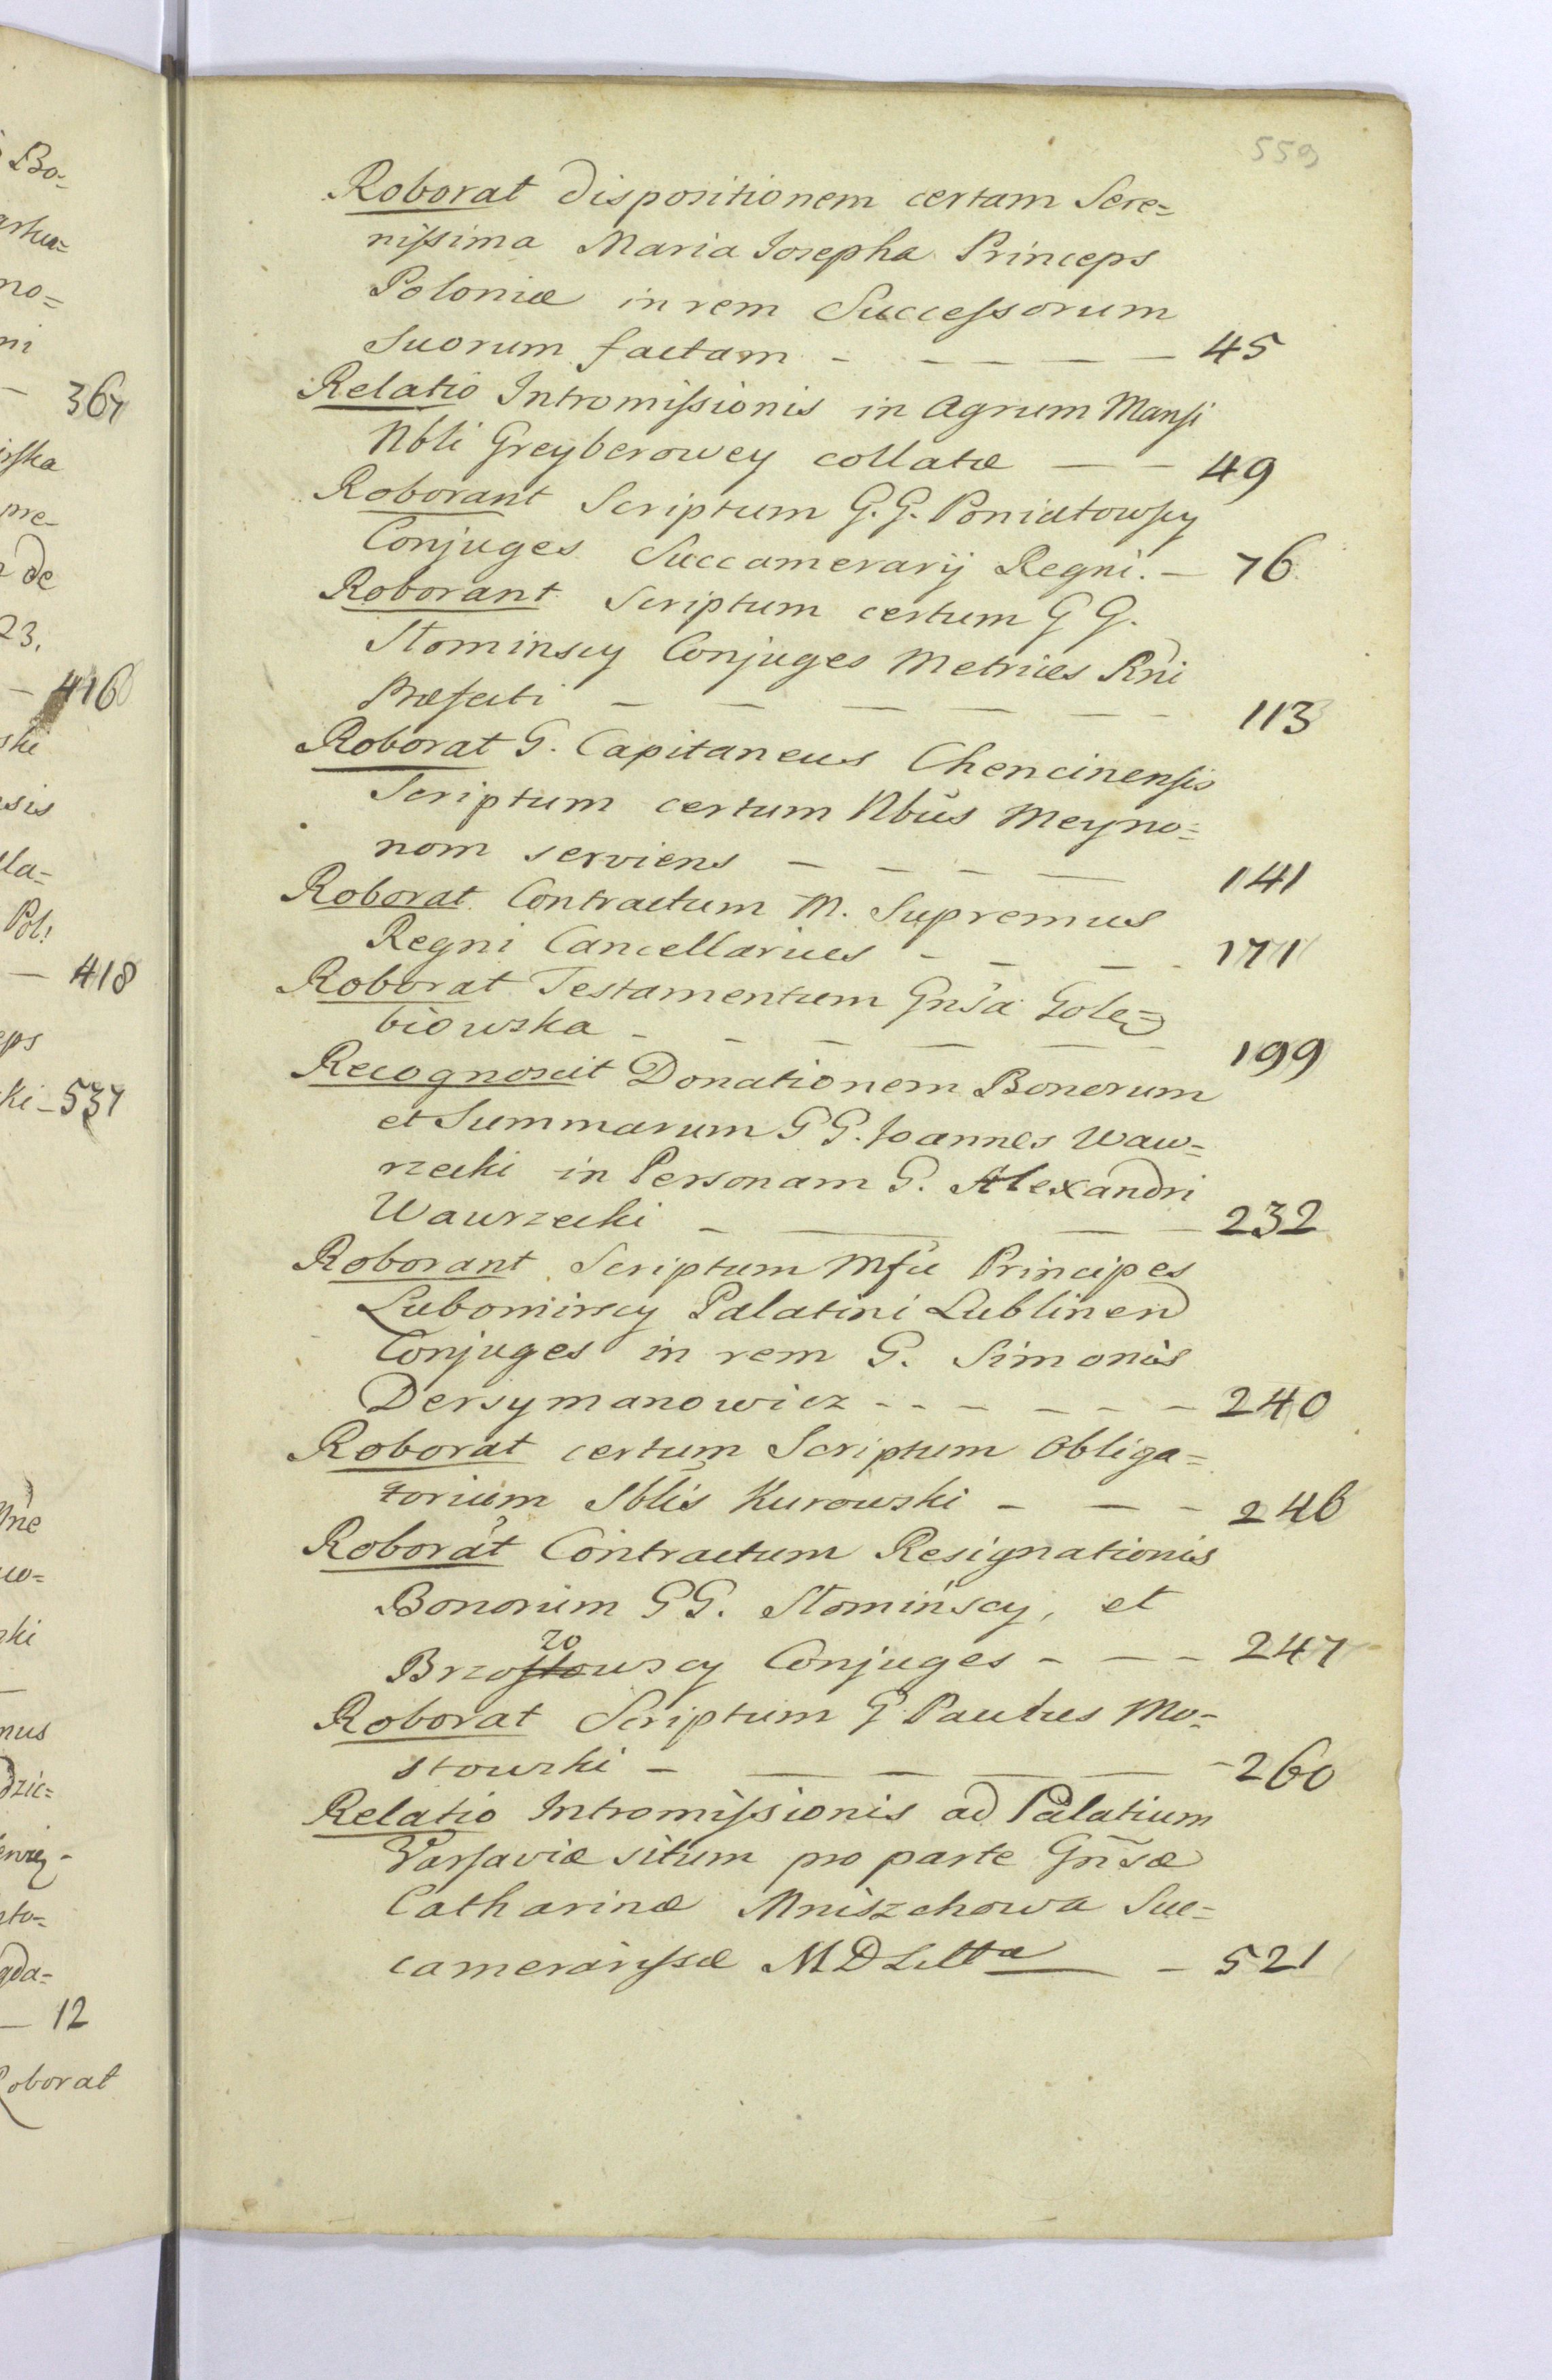 559
Roborat dispositionem certam Sere=
nissima Maria Josepha Princeps
Poloniæ in rem Successorum
Suorum factam - - - - - 45
Relatio Intromissionis in Agrum Mansi
Nbli Greyberowey collatæ - - 49
Roborant Scriptum G. G. Poniatowscy
Conjuges Succamerarij Regni. - 76
Roborant Scriptum certum G G.
Słominscy Conjuges Metrices Rni
Præfecti - - - - - - 113
Roborat G. Capitaneus Chencinensis
Scriptum certum Nbüs Meyno=
nom serviens - - - - 141
Roborat Contractum M. Supremus
Regni Cancellarius - - - - 171
Roborat Testamentum Gnsa Gole=
biowska - - - - - - 199
Recognoscit Donationem Bonorum
et Summarum G G. Joannes Waw=
rzecki in Personam G. Alexandri
Wawrzecki - - - - 232
Roborant Scriptum Mfii Principes
Lubomirscy Palatini Lublinen
Conjuges in rem G. Simonis
Dersymanowicz - - - - - - 240
Roborat certum Scriptum Obliga=
torium Sblis Kurowski - - - 246
Roborat Contractum Resignationis
Bonorum G G. Słomińscy, et
zo
Brzostowscy Conjuges - - - 247
Roborat Scriptum G Paulus Mo=
stowski - - - - - - 260
Relatio Intromissionis ad Palatium
Varsaviæ situm pro parte Gnsæ
Catharinæ Mniszchowa Suc=
camerarissæ M D Litta - 521
Bo=
no=
ni
- 367
irska
pre=
de
23.
- 416
ski
sis
la=
Pol:
- 418
eps
ki - 537
ne
wo=
ski
nus
dzic=
sto=
gda=
- 12
Roborat